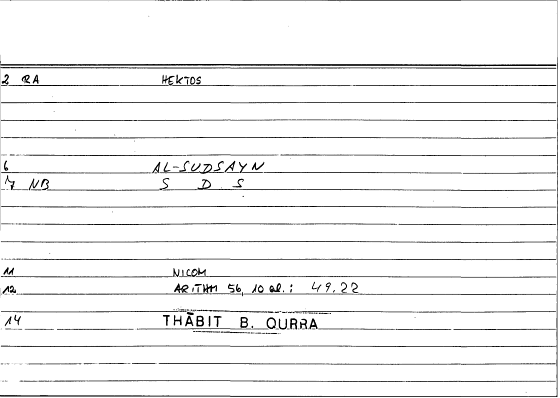 2 RA HEKTOS
6 AL-SUDSAYN
7 NB S D S
11 NICOM
12 ARITHM 56, 10 al.: 49.22
14 THĀBIT B. QURRA